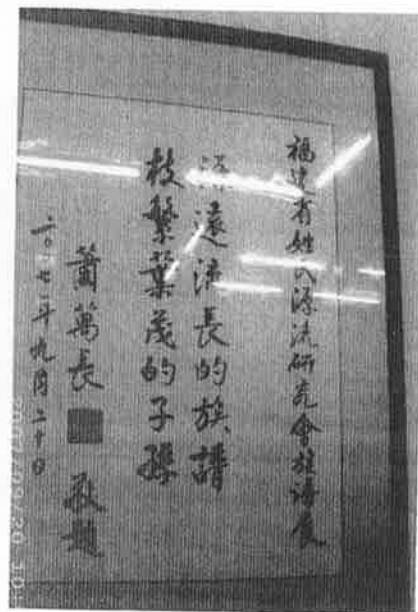 福建省姓氏源流研究會族譜展
源遠流長的族譜
枝繁葉茂的子孫
蕭萬長 敬題
二〇〇七年九月二十日
2007/09/20 10: